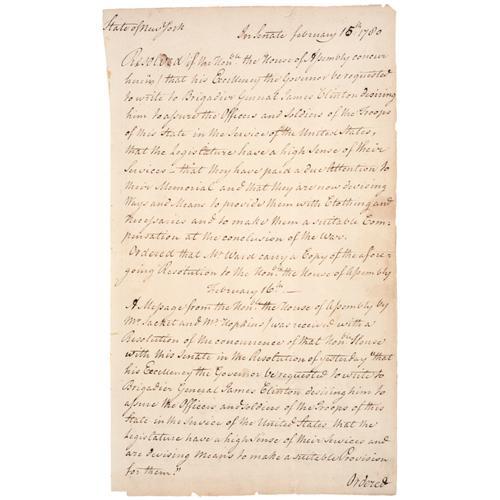 State of New York In Senate February 15th 1780
Resolved if the Honble the House of Assembly concur
herein / that his Excellency the Governor be requested
to write to Brigadier General James Clinton desiring
him to assure the Officers and Soldiers of the Troops
of this State in the Service of the United States,
that the Legislature have a high Sense of their
Services — that they have paid a due Attention to
their Memorial and that they are now devising
Ways and Means to provide them with Clothing and
Necessaries and to make them a suitable Com-
pensation at the conclusion of the War.
Ordered that Mr Ward carry a Copy of the afore-
going Resolution to the Honble the House of Assembly
February 16th —
A Message from the Honble the House of Assembly by
Mr Sacket and Mr Hopkins / was received with a
Resolution of the concurrence of that Honble House
with this Senate in the Resolution of yesterday "that
his Excellency the Governor be requested to write to
Brigadier General James Clinton desiring him to
assure the Officers and Soldiers of the Troops of this
State in the Service of the United States that the
Legislature have a high Sense of their Services and
are devising Means to make a suitable Provision
for them."
Ordered